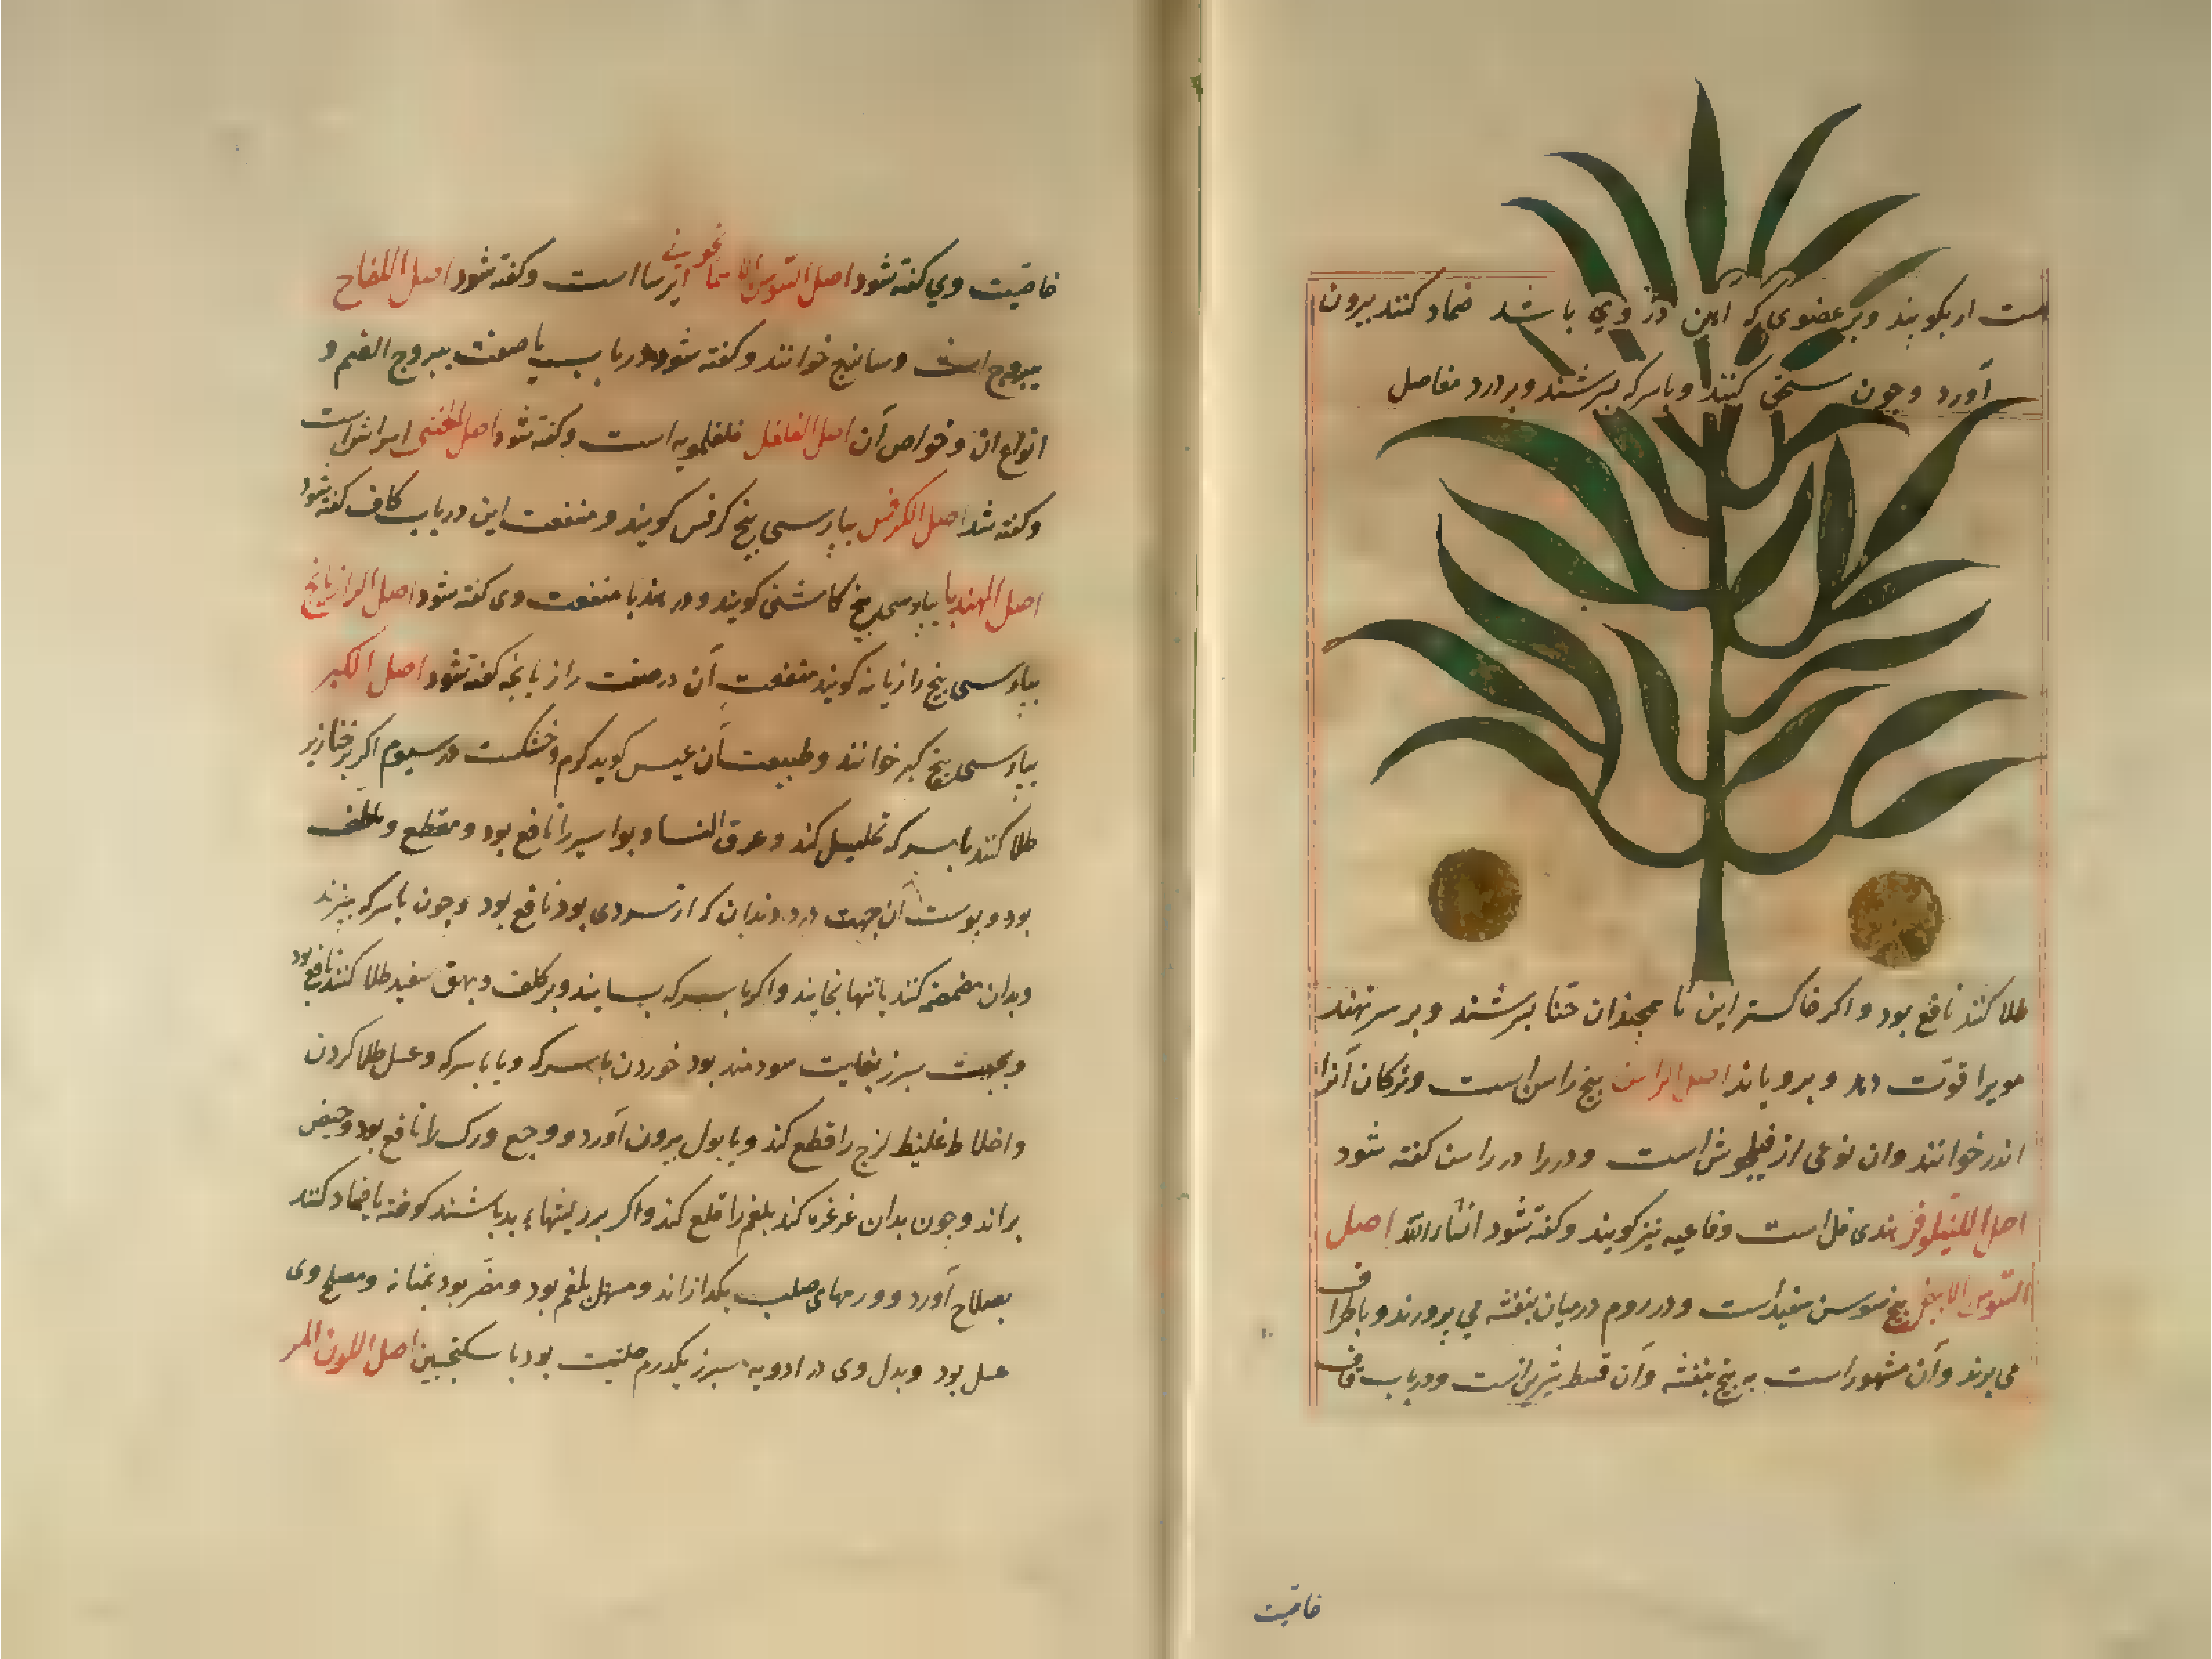 است اربکوبند وبر عضوی که آهن در وی باشد ضماد کنند بیرون
آورد وچون سحق کنند وباسرکه بسرشند وبر درد مفاصل
طلا کنند نافع بود واکر خاکستر این با حنا بسرشند وبر سر نهند
مویرا قوّت دهد و برویاند اصل الراسن بیخ راسن است وترکان آنرا
اندز خوانند وان نوعی از فیلجوش است ودر را در راسن کفته شود
اصل اللنیلوفر هندی فل است وفاعیه نیز کویند وکفته شود انشاءالله اصل
السّوسن الابیض بیخ سوسن سفید است ودر روم درمیان بنفشه می پرورند وباطراف
می برند وآن مشهور است به بیخ بنفشه وآن قسط شیرین است ودرباب قاف
خاصیت
خاصیت وی کفته شود اصل السّوسن الاسمانجونی ایرسا است وکفته شود اصل اللفاح
یبروج است وسابیزج خوانند وکفته شود درباب یا صفت یبروج الصنم و
انواع ان وخواص آن اصل الفلفل فلفلمویه است وکفته شود اصل الخنثی اسراش است
وکفته شد اصل الکرفس بپارسی بیخ کرفس کویند ومنفعت این درباب کاف کفته شود
اصل الهندبا بپارسی بیخ کاشنی کویند ودر هندبا منفعت وی کفته شود اصل الرازیانج
بپارسی بیخ رازیانه کویند منفعت آن درصفت رازیانه کفته شود اصل الکبر
بپارسی بیخ کبر خوانند وطبیعت آن عیسی کوید کرم وخشکست درسیوم اکر برخنازیر
طلا کنند باسرکه تحلیل کند وعرق النسا وبواسیر را نافع بود ومقطع وملطف
بود وپوست آن جهت درد دندان که از سردی بود نافع بود وچون باسرکه بپزند
وبدان مضمضه کنند یا تنها بخایند واکر باسرکه بسایند وبر کلف وبهق سفید طلا کنند نافع بود
وبجهت سپرز بغایت سودمند بود خوردن باسرکه ویا باسرکه وعسل طلا کردن
واخلاط غلیظ لزج را قطع کند وبا بول بیرون آورد ووجع ورک را نافع بود وحیض
براند وچون بدان غرغره کند بلغم را قلع کند واکر بر ریشهاء بد باشند کوفته یا ضماد کنند
بصلاح آورد وورمهای صلب بکدازاند ومسهل بلغم بود ومضر بود بمثانه ومصلح وی
عسل بود وبدل وی در ادویه سپرز یکدرم حلتیت بود با سکنجبین اصل اللوف المر